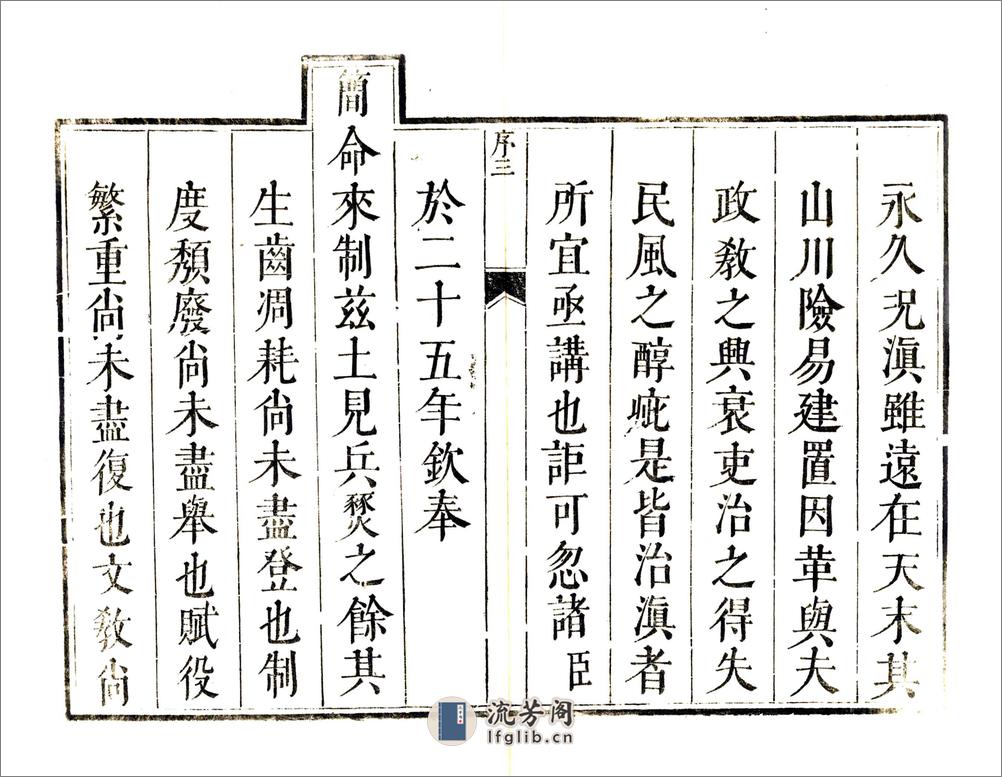 永久况滇雖遠在天末其
山川險易建置因革與夫
政教之興衰吏治之得失
民風之醇疵是皆治滇者
所宜亟講也詎可忽諸臣
序三
於二十五年欽奉
簡命來制兹土見兵燹之餘其
生齒凋耗尚未盡登也制
度頽廢尚未盡舉也賦役
繁重尚未盡復也文教尚
流芳阁
lfglib.cn